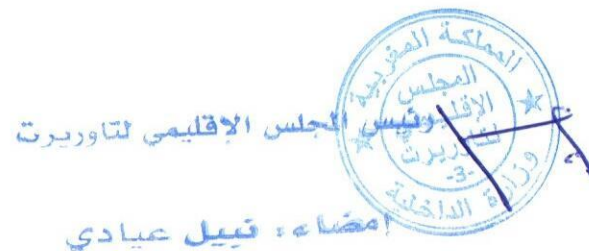 المملكة المغربية
المجلس
الإقليمي
لتاوريرت
-3-
وزارة الداخلية
رئيس المجلس الإقليمي لتاوريرت
إمضاء: نبيل عيادي